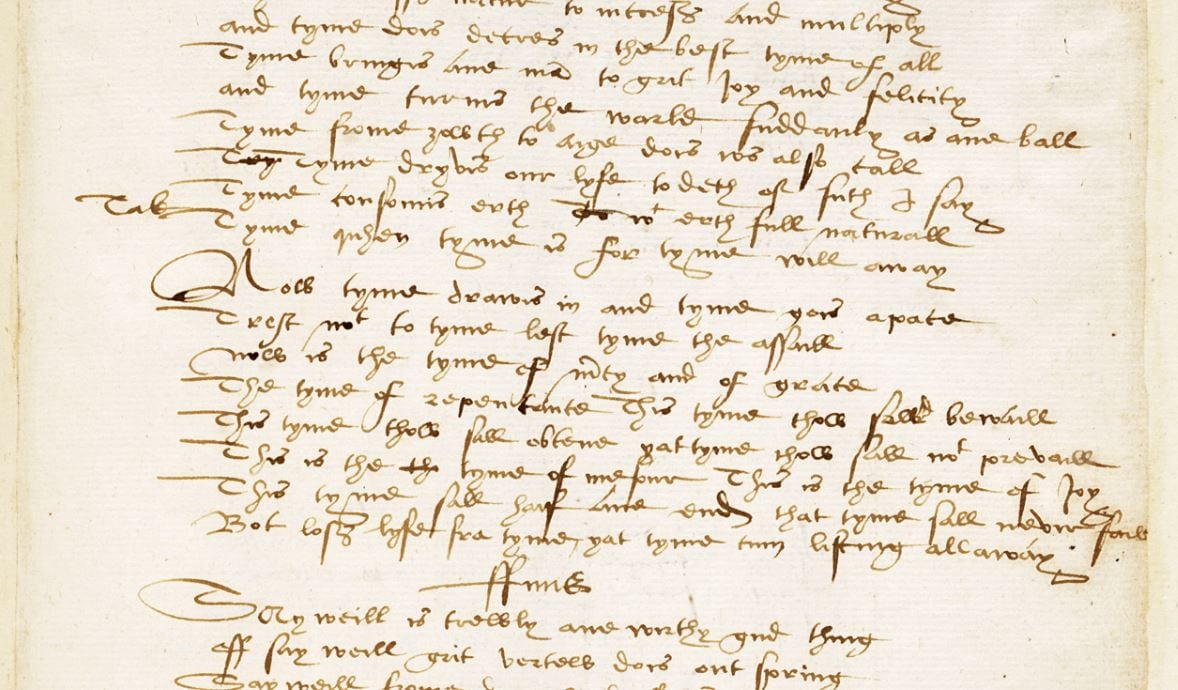 to incress and multiply
and tyme dois decres in the best tyme of all
Tyme bringis ane mā to grit Joy and felicity
and tyme turnis the warld suddanly as ane ball
Tyme frome zowth to aige dois ws also call
Tyme dryvis our lyfe to deth of suth I say
Tyme consomis erth wt erth full naturall
Tak Tyme quhen tyme is for tyme will away
Now tyme drawis in and tyme gois apace
Trest not to tyme lest tyme the assaill
Now is the tyme of mrcy and of grace
The tyme of repentance This tyme thow sall bewaill
This tyme thow sall obtene yat tyme thow sall not prevaill
This is the tyme of mesour This is the tyme of Joy
This tyme sall haif ane end that tyme sall nevir faill
Bot loss lyfe fra tyme, yat tyme cum lifting all away
ffinis
Say weill is trewly ane wirthy gud thing
off say weill grit vertew dois out spring
Say weill frome